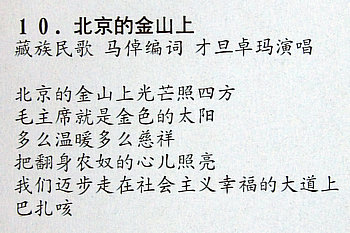 10．北京的金山上
藏族民歌 马倬编词 才旦卓玛演唱
北京的金山上光芒照四方
毛主席就是金色的太阳
多么温暖多么慈祥
把翻身农奴的心儿照亮
我们迈步走在社会主义幸福的大道上
巴扎咳